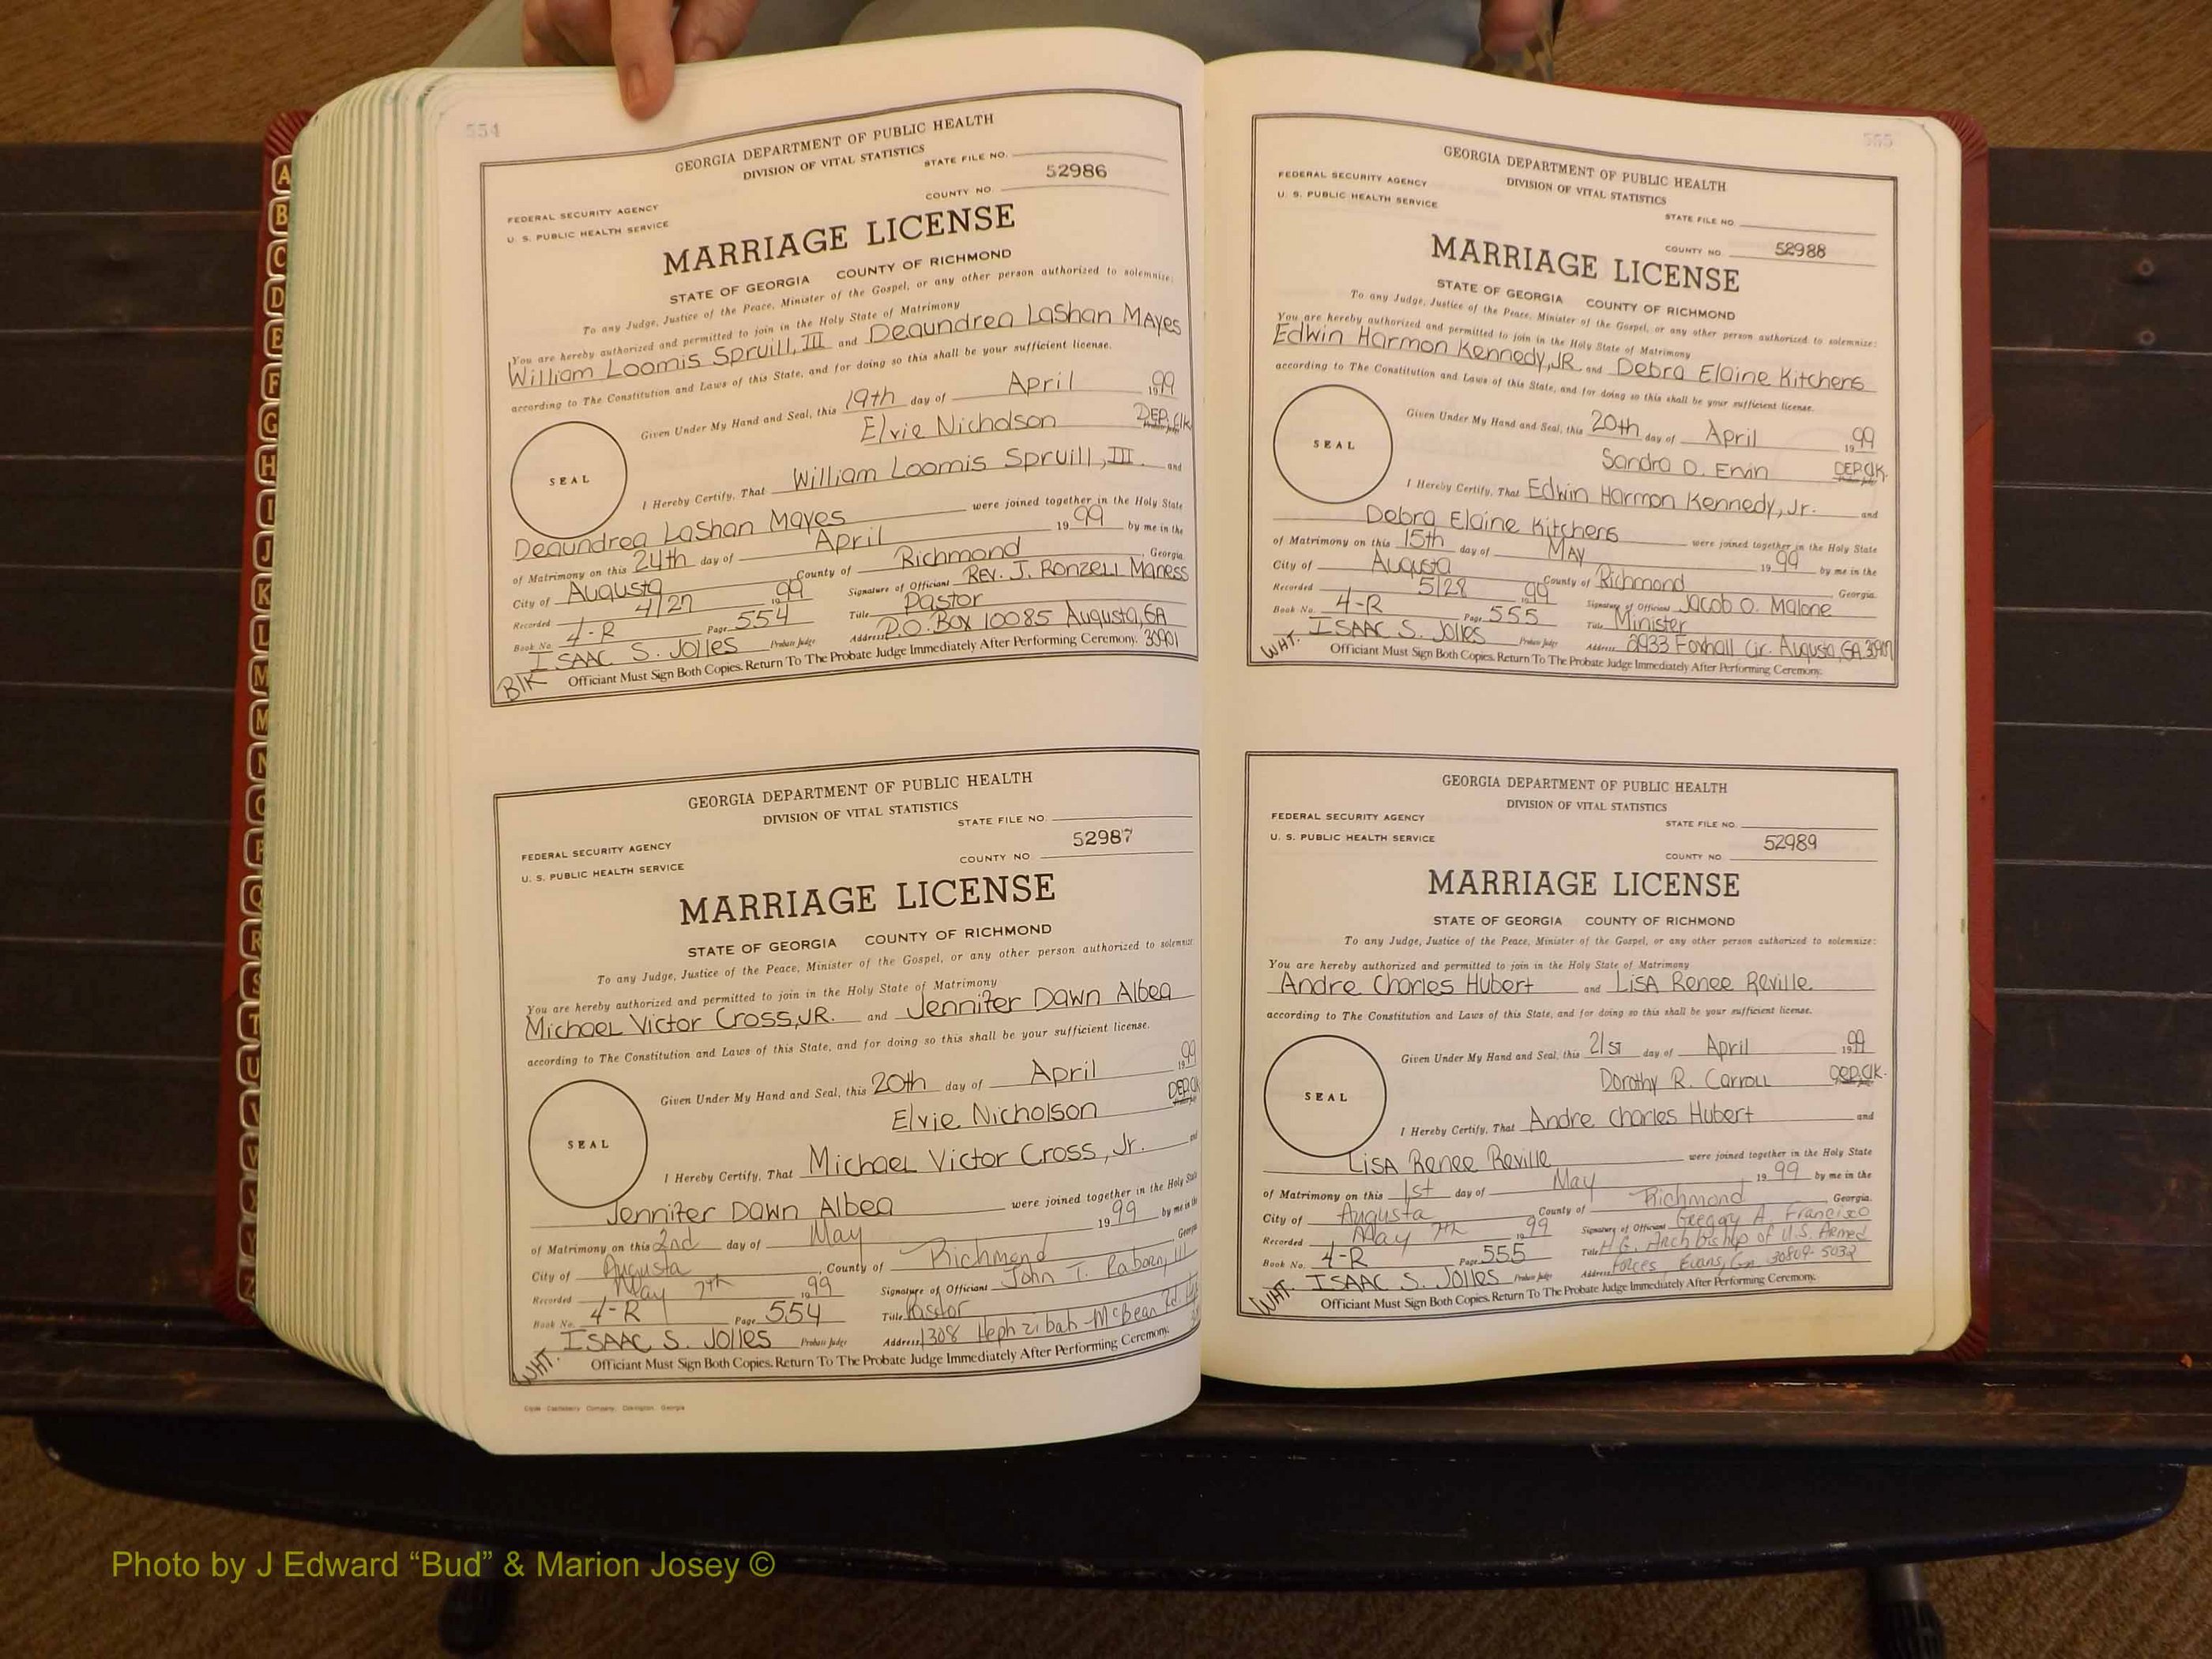 554
GEORGIA DEPARTMENT OF PUBLIC HEALTH
DIVISION OF VITAL STATISTICS
STATE FILE NO.
52986
COUNTY NO.
FEDERAL SECURITY AGENCY
U. S. PUBLIC HEALTH SERVICE
MARRIAGE LICENSE
STATE OF GEORGIA COUNTY OF RICHMOND
To any Judge, Justice of the Peace, Minister of the Gospel, or any other person authorized to solemnize:
You are hereby authorized and permitted to join in the Holy State of Matrimony
William Loomis Spruill, III and Deaundrea LaShan Mayes
according to The Constitution and Laws of this State, and for doing so this shall be your sufficient license.
Given Under My Hand and Seal, this 19th day of April 1999
Elvie Nicholson DEP. Clk
SEAL
I Hereby Certify, That William Loomis Spruill, III and
Deaundrea LaShan Mayes were joined together in the Holy State
of Matrimony on this 24th day of April 1999 by me in the
City of Augusta, County of Richmond, Georgia.
Recorded 4/27 1999 Signature of Officiant REV. J. RONZELL MANESS
Book No. 4-R Page 554 Title Pastor
ISAAC S. JOLLES Probate Judge Address P.O. Box 10085 Augusta, GA 30901
BlK Officiant Must Sign Both Copies. Return To The Probate Judge Immediately After Performing Ceremony.
GEORGIA DEPARTMENT OF PUBLIC HEALTH
DIVISION OF VITAL STATISTICS
STATE FILE NO.
52987
COUNTY NO.
FEDERAL SECURITY AGENCY
U. S. PUBLIC HEALTH SERVICE
MARRIAGE LICENSE
STATE OF GEORGIA COUNTY OF RICHMOND
To any Judge, Justice of the Peace, Minister of the Gospel, or any other person authorized to solemnize
You are hereby authorized and permitted to join in the Holy State of Matrimony
Michael Victor Cross, JR. and Jennifer Dawn Albea
according to The Constitution and Laws of this State, and for doing so this shall be your sufficient license.
Given Under My Hand and Seal, this 20th day of April 1999
Elvie Nicholson DEP. Clk
SEAL
I Hereby Certify, That Michael Victor Cross, Jr. and
Jennifer Dawn Albea were joined together in the Holy State
of Matrimony on this 2nd day of May 1999 by me in the
City of Augusta, County of Richmond Georgia
Recorded May 7th 1999 Signature of Officiant John T. Raborn, III
Book No. 4-R Page 554 Title Pastor
ISAAC S. JOLLES Probate Judge Address 1308 Hephzibah-McBean Rd.
WHT. Officiant Must Sign Both Copies. Return To The Probate Judge Immediately After Performing Ceremony.
Company, Covington, Georgia
555
GEORGIA DEPARTMENT OF PUBLIC HEALTH
DIVISION OF VITAL STATISTICS
FEDERAL SECURITY AGENCY
U. S. PUBLIC HEALTH SERVICE
STATE FILE NO.
COUNTY NO. 52988
MARRIAGE LICENSE
STATE OF GEORGIA COUNTY OF RICHMOND
To any Judge, Justice of the Peace, Minister of the Gospel, or any other person authorized to solemnize:
You are hereby authorized and permitted to join in the Holy State of Matrimony
Edwin Harmon Kennedy, JR. and Debra Elaine Kitchens
according to The Constitution and Laws of this State, and for doing so this shall be your sufficient license.
Given Under My Hand and Seal, this 20th day of April 1999
Sandra D. Ervin DEP. Clk.
SEAL
I Hereby Certify, That Edwin Harmon Kennedy, Jr. and
Debra Elaine Kitchens were joined together in the Holy State
of Matrimony on this 15th day of May 1999 by me in the
City of Augusta County of Richmond Georgia.
Recorded 5/28 1999 Signature of Officiant Jacob O. Malone
Book No. 4-R Page 555 Title Minister
ISAAC S. JOLLES Probate Judge Address 2933 Foxhall Cir. Augusta, GA
WHT. Officiant Must Sign Both Copies. Return To The Probate Judge Immediately After Performing Ceremony.
GEORGIA DEPARTMENT OF PUBLIC HEALTH
DIVISION OF VITAL STATISTICS
FEDERAL SECURITY AGENCY
U. S. PUBLIC HEALTH SERVICE
STATE FILE NO.
52989
COUNTY NO.
MARRIAGE LICENSE
STATE OF GEORGIA COUNTY OF RICHMOND
To any Judge, Justice of the Peace, Minister of the Gospel, or any other person authorized to solemnize:
You are hereby authorized and permitted to join in the Holy State of Matrimony
Andre Charles Hubert and Lisa Renee Reville
according to The Constitution and Laws of this State, and for doing so this shall be your sufficient license.
Given Under My Hand and Seal, this 21st day of April 1999
Dorothy R. Carroll DEP. Clk.
SEAL
I Hereby Certify, That Andre Charles Hubert and
Lisa Renee Reville were joined together in the Holy State
of Matrimony on this 1st day of May 1999 by me in the
City of Augusta County of Richmond Georgia.
Recorded May 7th 1999 Signature of Officiant Greggy A. Francisco
Book No. 4-R Page 555 Title H.G. Archbishop of U.S. Armed
ISAAC S. JOLLES Probate Judge Address Forces, Evans, Ga 30809-5032
WHT. Officiant Must Sign Both Copies. Return To The Probate Judge Immediately After Performing Ceremony.
A
B
C
D
E
F
G
H
I
J
K
L
M
M
N
O
P
Q
R
S
T
U
V
W
X
Y
Z
Photo by J Edward “Bud” & Marion Josey ©